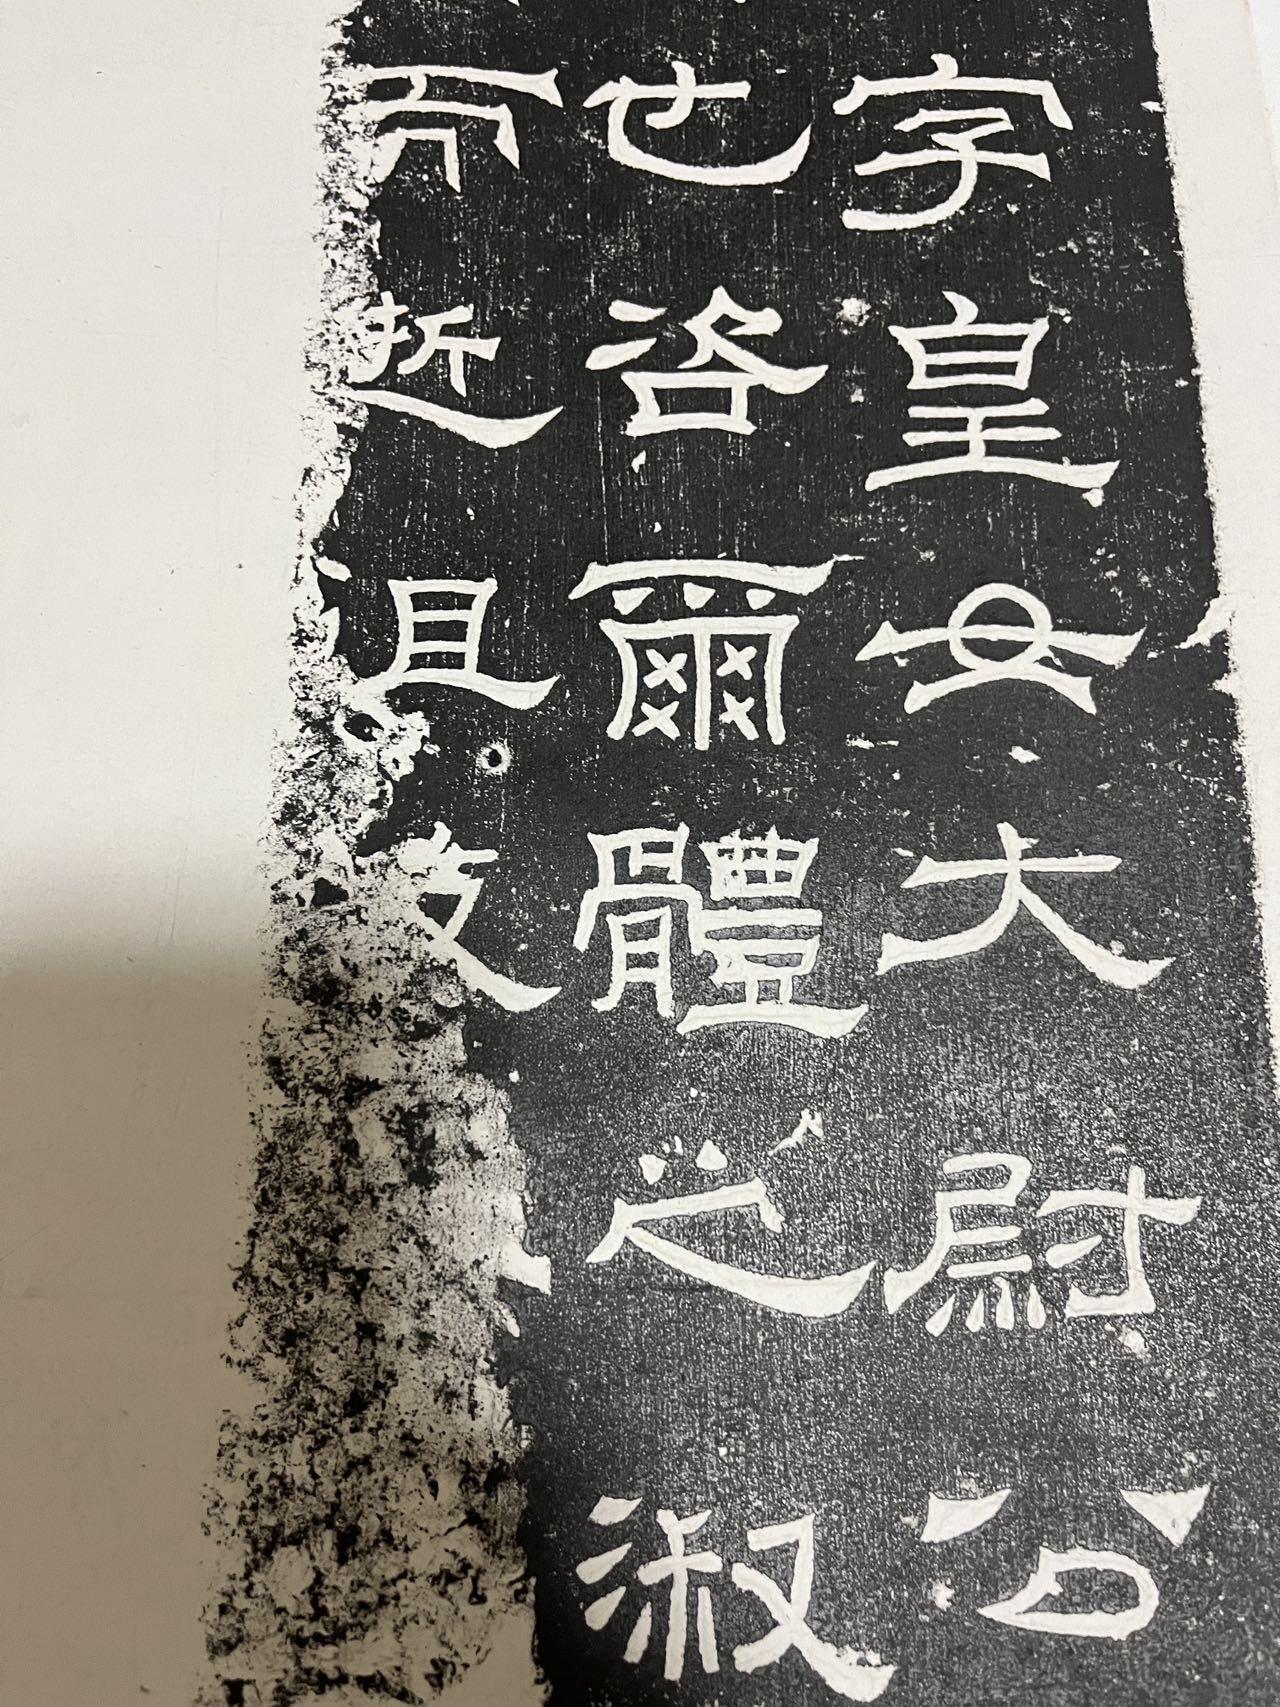 字皇女大尉公
也咨爾體之淑
而逝且